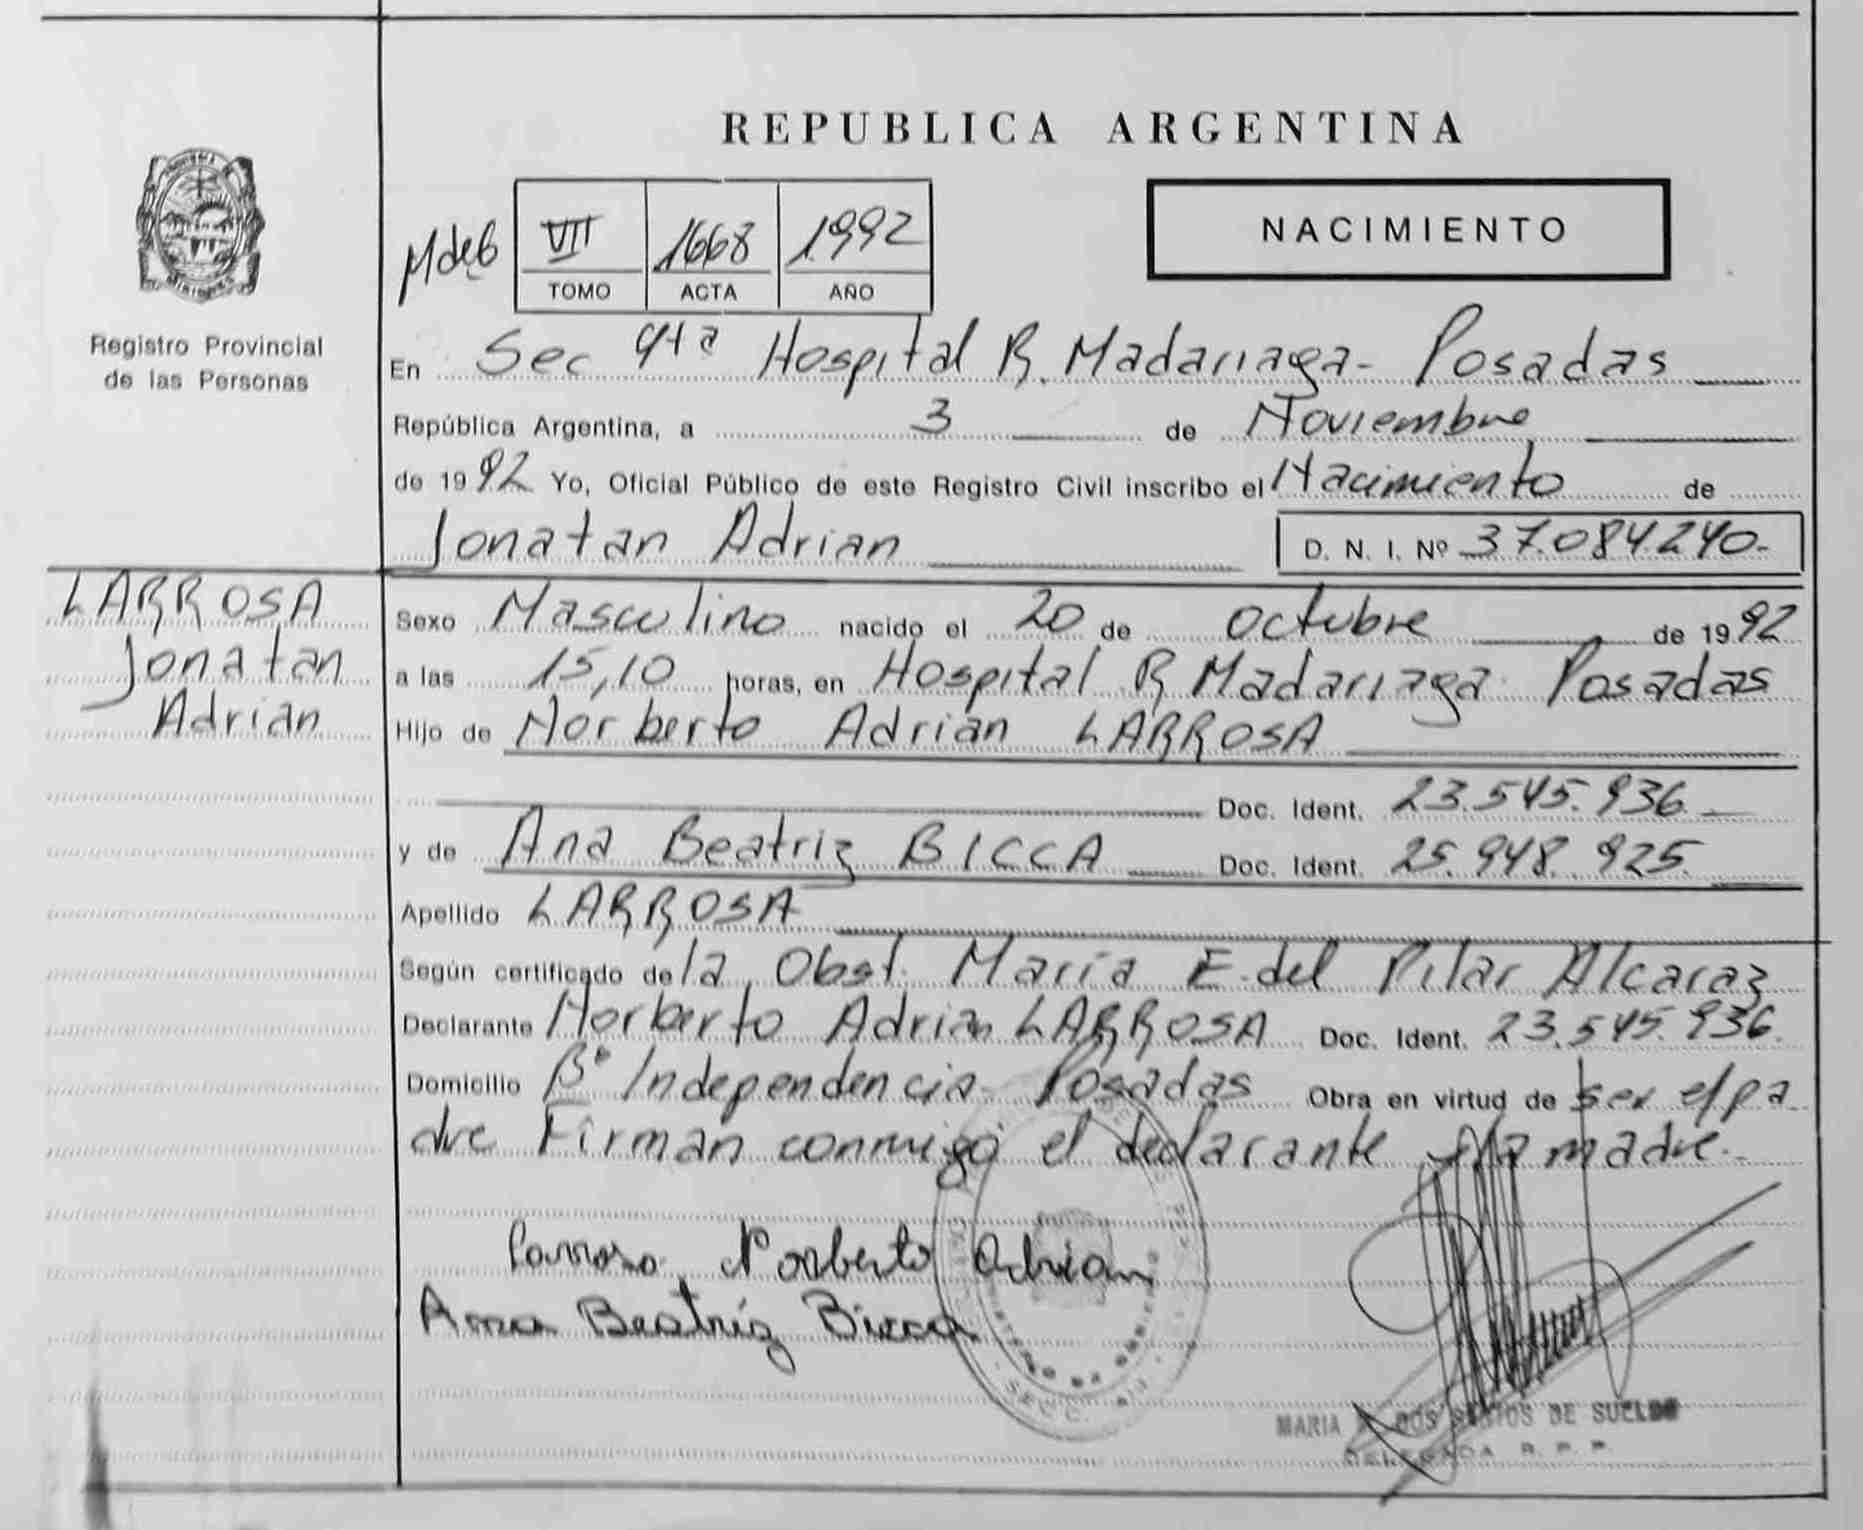 REPUBLICA ARGENTINA
NACIMIENTO
Registro Provincial
de las Personas
VII 1668 1992
TOMO ACTA AÑO
En Sec 4ta Hospital R. Madariaga - Posadas
República Argentina, a 3 de Noviembre
de 1992 Yo, Oficial Público de este Registro Civil inscribo el Nacimiento de
Jonatan Adrian D. N. I. Nº 37.084.240-
LARROSA
Jonatan
Adrian
Sexo Masculino nacido el 20 de octubre de 1992
a las 15,10 horas, en Hospital R Madariaga Posadas
Hijo de Norberto Adrian LARROSA
Doc. Ident. 23.545.936.
y de Ana Beatriz BICCA Doc. Ident. 25.948.925.
Apellido LARROSA
Según certificado de la Obst. María E. del Pilar Alcaraz
Declarante Norberto Adrian LARROSA Doc. Ident. 23.545.936.
Domicilio Bº Independencia - Posadas Obra en virtud de ser el pa
dre Firman conmigo el declarante y la madre.-
Larrosa Norberto Adrian
Ana Beatriz Bicca
MARIA DOS SANTOS DE SUELDO
DELEGADA R. P. P.